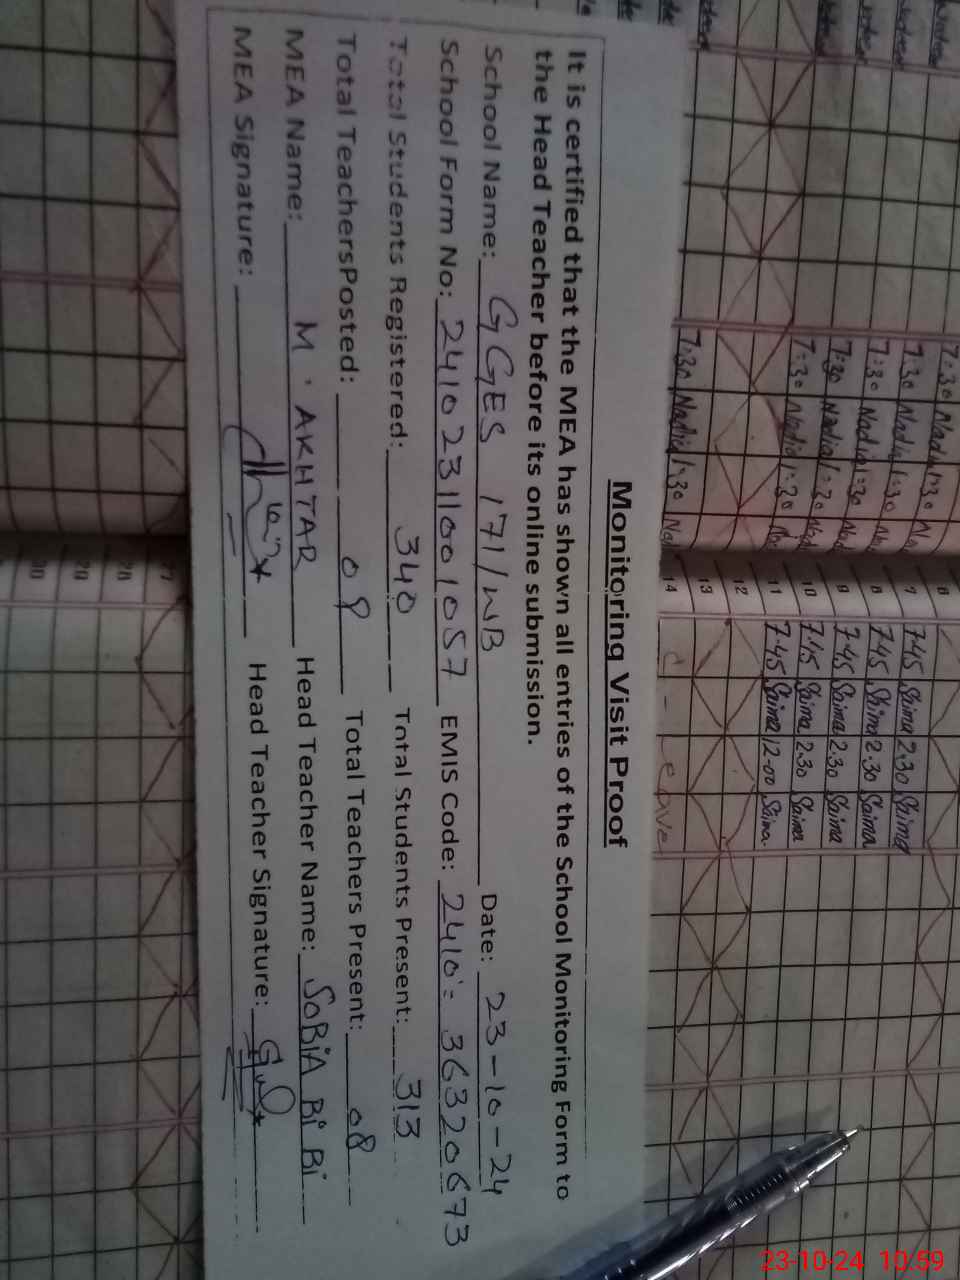 Monitoring Visit Proof
It is certified that the MEA has shown all entries of the School Monitoring Form to
the Head Teacher before its online submission.
School Name: GGES 171/WB Date: 23-10-24
School Form No: 2410231100 1057 EMIS Code: 2410: 36320673
Total Students Registered: 340 Total Students Present: 313
Total TeachersPosted: 08 Total Teachers Present: 08
MEA Name: M. AKHTAR Head Teacher Name: SOBIA BiBi
MEA Signature: Head Teacher Signature:
7:30 Nadia 1:30
7:30 Nadia 1:30
7:30 Nadia 1:30
7:30 Nadia 1:30
7:30 Nadia 1:30
7:30 Nadia 1:30
6
7 7-45 Saima 2.30 Saima
8 7-45 Saima 2.30 Saima
9 7-45 Saima 2.30 Saima
10 7-45 Saima 2.30 Saima
11 7-45 Saima 12-00 Saima
12
13
14
27
28
29
30
23-10-24 10:59